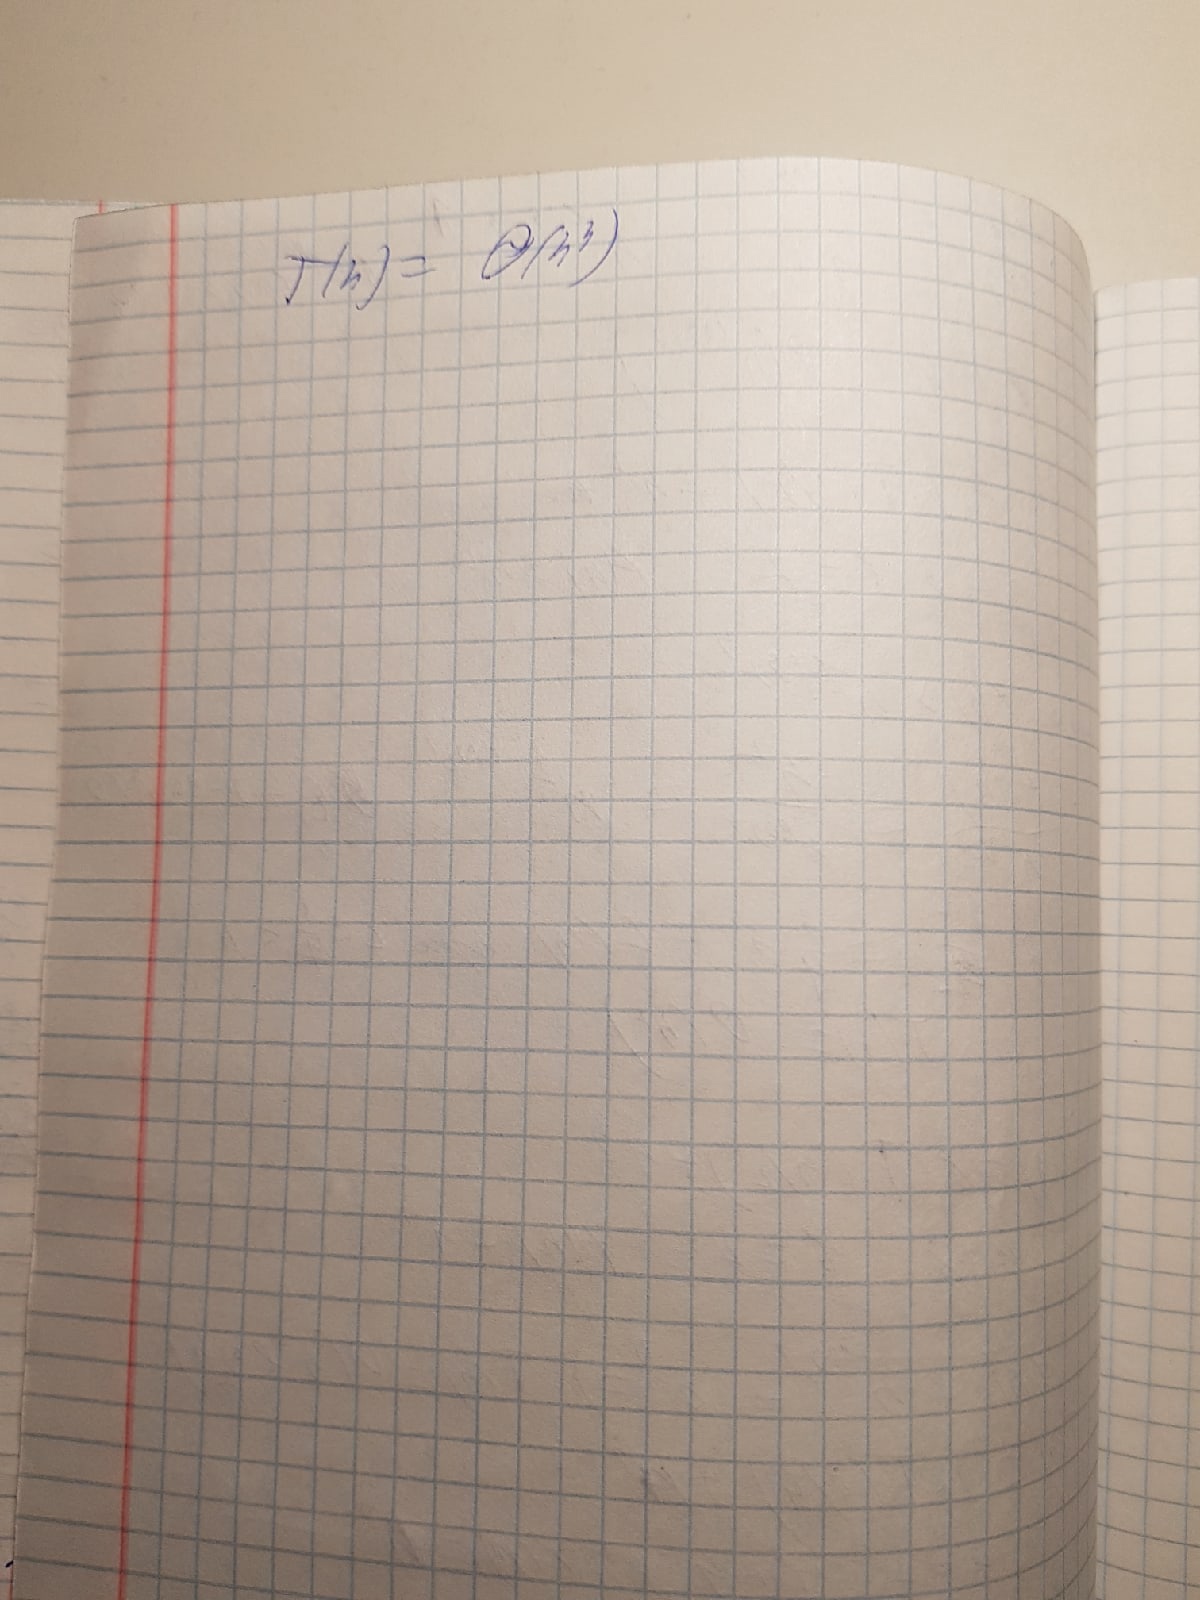 T(n) = Θ(n³)